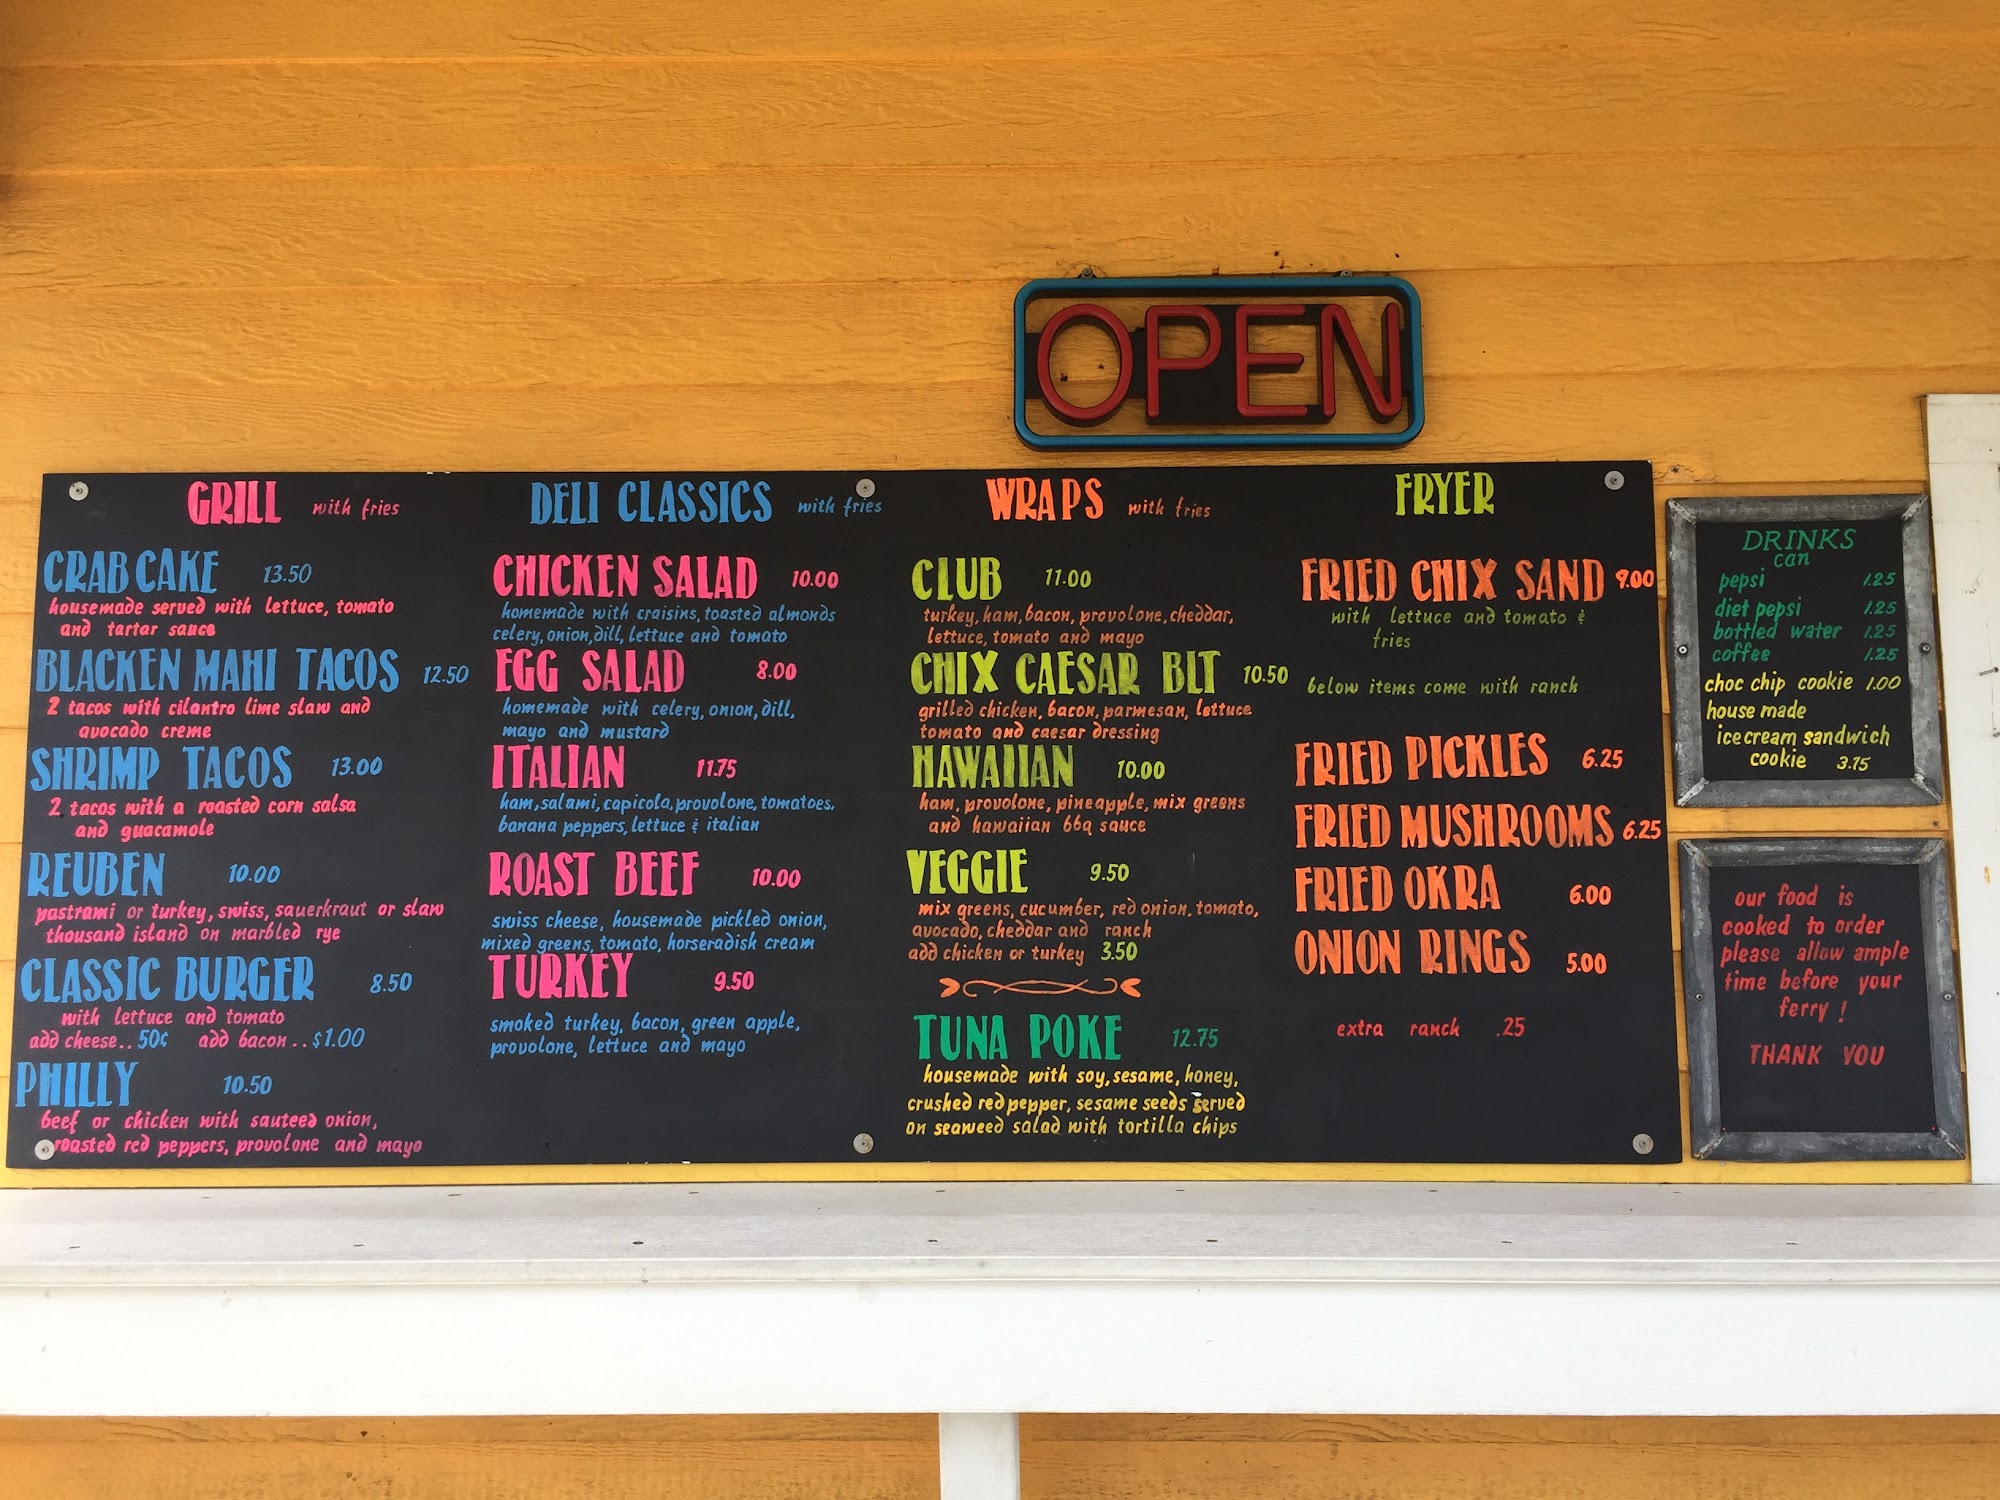 OPEN
GRILL with fries
CRAB CAKE 13.50
housemade served with lettuce, tomato
and tartar sauce
BLACKEN MAHI TACOS 12.50
2 tacos with cilantro lime slaw and
avocado creme
SHRIMP TACOS 13.00
2 tacos with a roasted corn salsa
and guacamole
REUBEN 10.00
pastrami or turkey, swiss, sauerkraut or slaw
thousand island on marbled rye
CLASSIC BURGER 8.50
with lettuce and tomato
add cheese.. 50¢ add bacon.. $1.00
PHILLY 10.50
beef or chicken with sauteed onion,
roasted red peppers, provolone and mayo
DELI CLASSICS with fries
CHICKEN SALAD 10.00
homemade with craisins, toasted almonds
celery, onion, dill, lettuce and tomato
EGG SALAD 8.00
homemade with celery, onion, dill,
mayo and mustard
ITALIAN 11.75
ham, salami, capicola, provolone, tomatoes.
banana peppers, lettuce & italian
ROAST BEEF 10.00
swiss cheese, housemade pickled onion,
mixed greens, tomato, horseradish cream
TURKEY 9.50
smoked turkey, bacon, green apple,
provolone, lettuce and mayo
WRAPS with fries
CLUB 11.00
turkey, ham, bacon, provolone, cheddar,
lettuce, tomato and mayo
CHIX CAESAR BLT 10.50
grilled chicken, bacon, parmesan, lettuce
tomato and caesar dressing
HAWAIIAN 10.00
ham, provolone, pineapple, mix greens
and hawaiian bbq sauce
VEGGIE 9.50
mix greens, cucumber, red onion, tomato,
avocado, cheddar and ranch
add chicken or turkey 3.50
TUNA POKE 12.75
housemade with soy, sesame, honey,
crushed red pepper, sesame seeds served
on seaweed salad with tortilla chips
FRYER
FRIED CHIX SAND 9.00
with lettuce and tomato &
fries
below items come with ranch
FRIED PICKLES 6.25
FRIED MUSHROOMS 6.25
FRIED OKRA 6.00
ONION RINGS 5.00
extra ranch .25
DRINKS
can
pepsi 1.25
diet pepsi 1.25
bottled water 1.25
coffee 1.25
choc chip cookie 1.00
house made
icecream sandwich
cookie 3.75
our food is
cooked to order
please allow ample
time before your
ferry!
THANK YOU